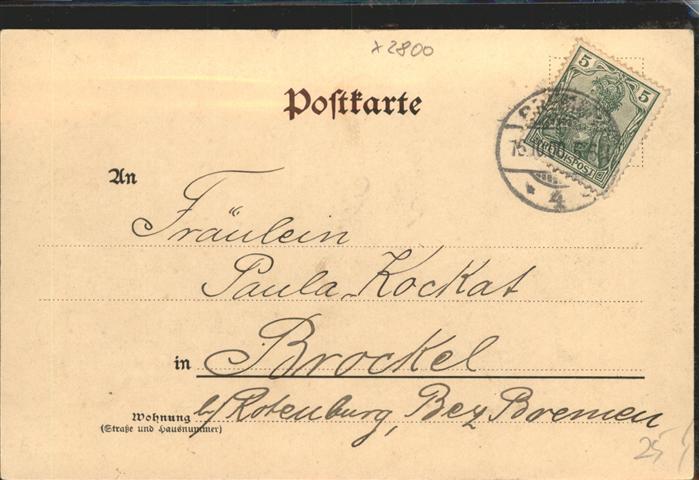 x 2800
Postkarte
5 5
REICHSPOST
4
An
Fräulein
Paula Kockat
in Brockel
Wohnung b/Rotenburg, Bez Bremen
(Straße und Hausnummer)
25,-